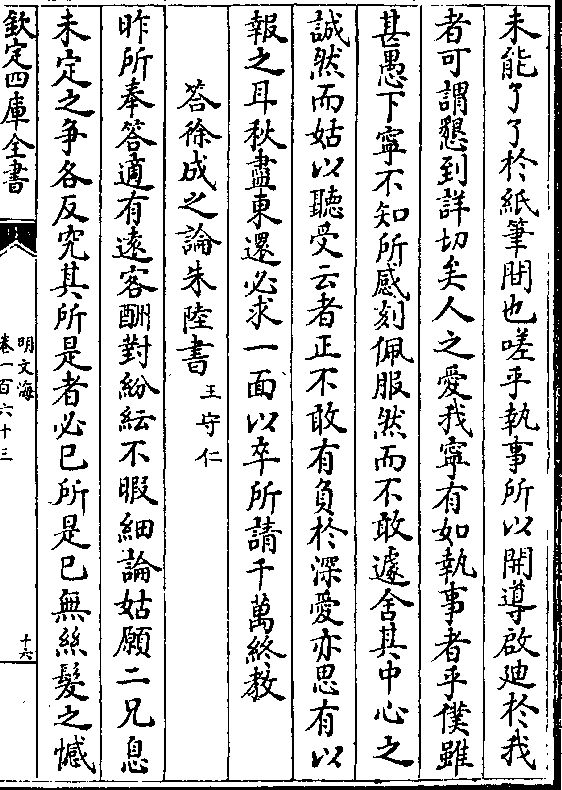 未能了了於紙筆間也嗟乎執事所以開導啟迪於我
者可謂懇到詳切矣人之愛我寧有如執事者乎僕雖
甚愚下寧不知所感刻佩服然而不敢遽舍其中心之
誠然而姑以聽受云者正不敢有負於深愛亦思有以
報之耳秋盡東還必求一面以卒所請千萬終教
答徐成之論朱陸書
王守仁
昨所奉答適有遠客酬對紛紜不暇細論姑願二兄息
未定之争各反究其所是者必已所是已無絲髮之憾
欽定四庫全書
明文海
卷一百六十三
十六